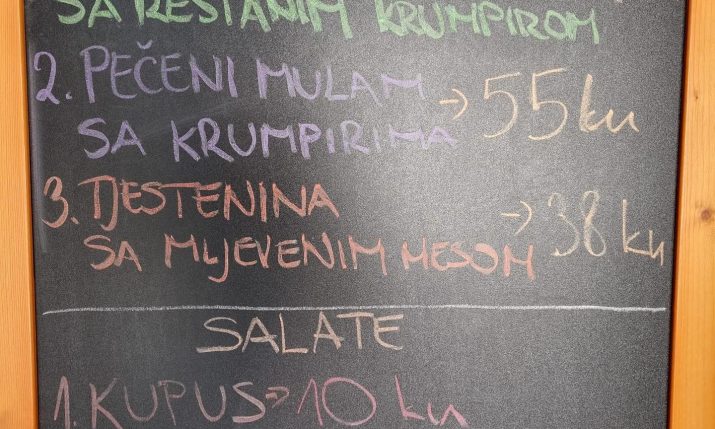 SA RESTANIM KRUMPIROM
2. PEČENI MULAM
SA KRUMPIRIMA → 55 ku
3. TJESTENINA
SA MLJEVENIM MESOM → 38 ku
SALATE
1. KUPUS → 10 ku